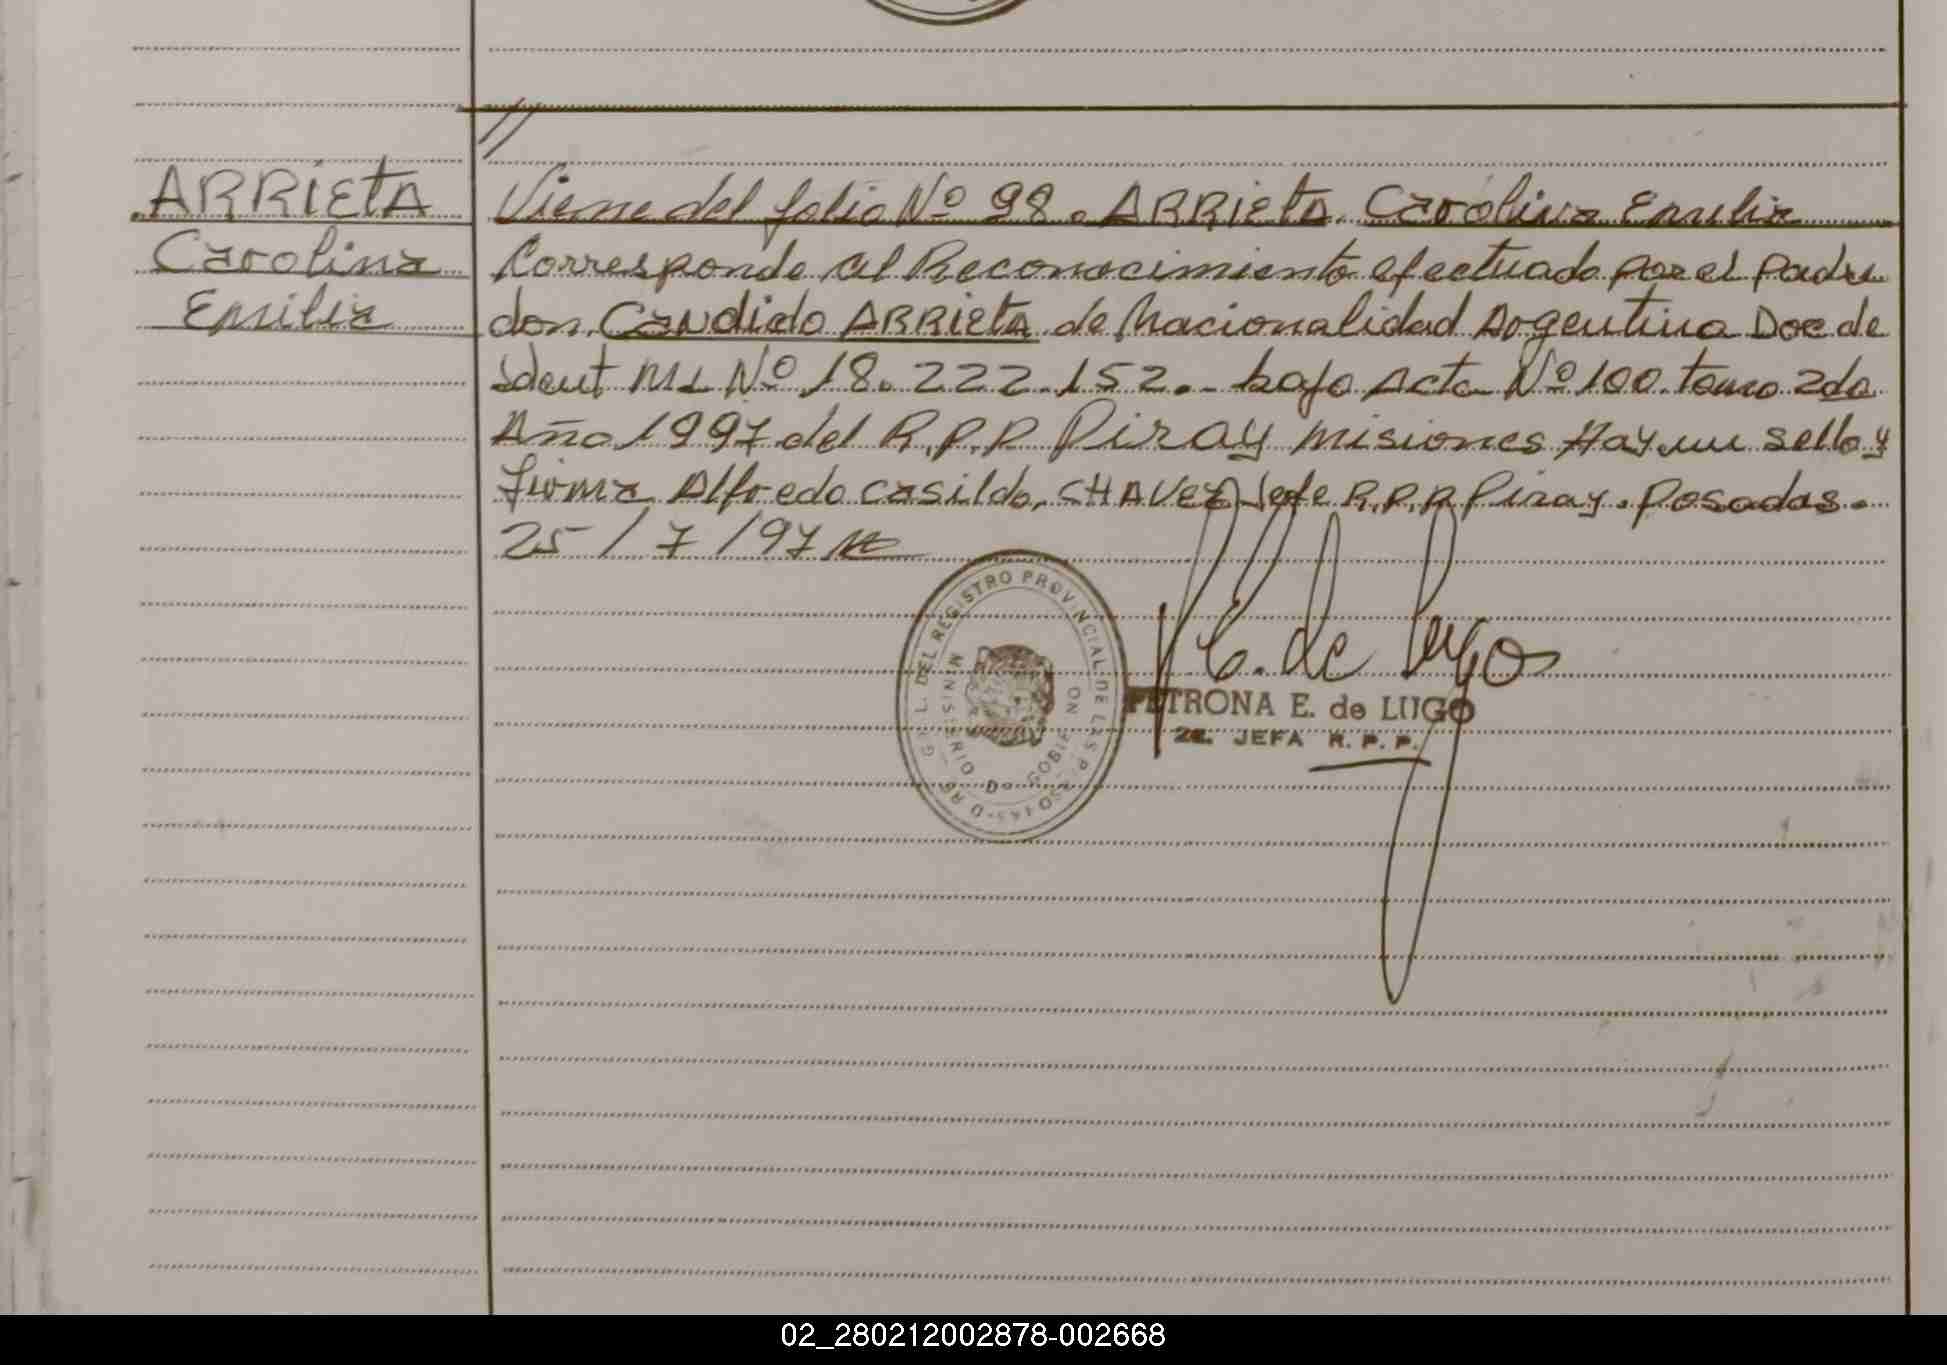 ARRIETA
Carolina
Emilia
//
Viene del folio Nº 98. ARRIETA Carolina Emilia
Corresponde al Reconocimiento efectuado por el Padre
don Candido ARRIETA de Nacionalidad Argentina Doc de
Ident MI Nº 18.222.152.- bajo Acta Nº 100 tomo 2do
Año 1997 del R.P.P Piray Misiones Hay un sello y
firma Alfredo Casildo CHAVEZ Jefe R.P.P Piray. Posadas.
25/7/97
P. E. de Lugo
PETRONA E. de LUGO
2a. JEFA R. P. P.
DEL REGISTRO PROVINCIAL DE LAS PERSONAS
MINISTERIO DE GOBIERNO
02_280212002878-002668